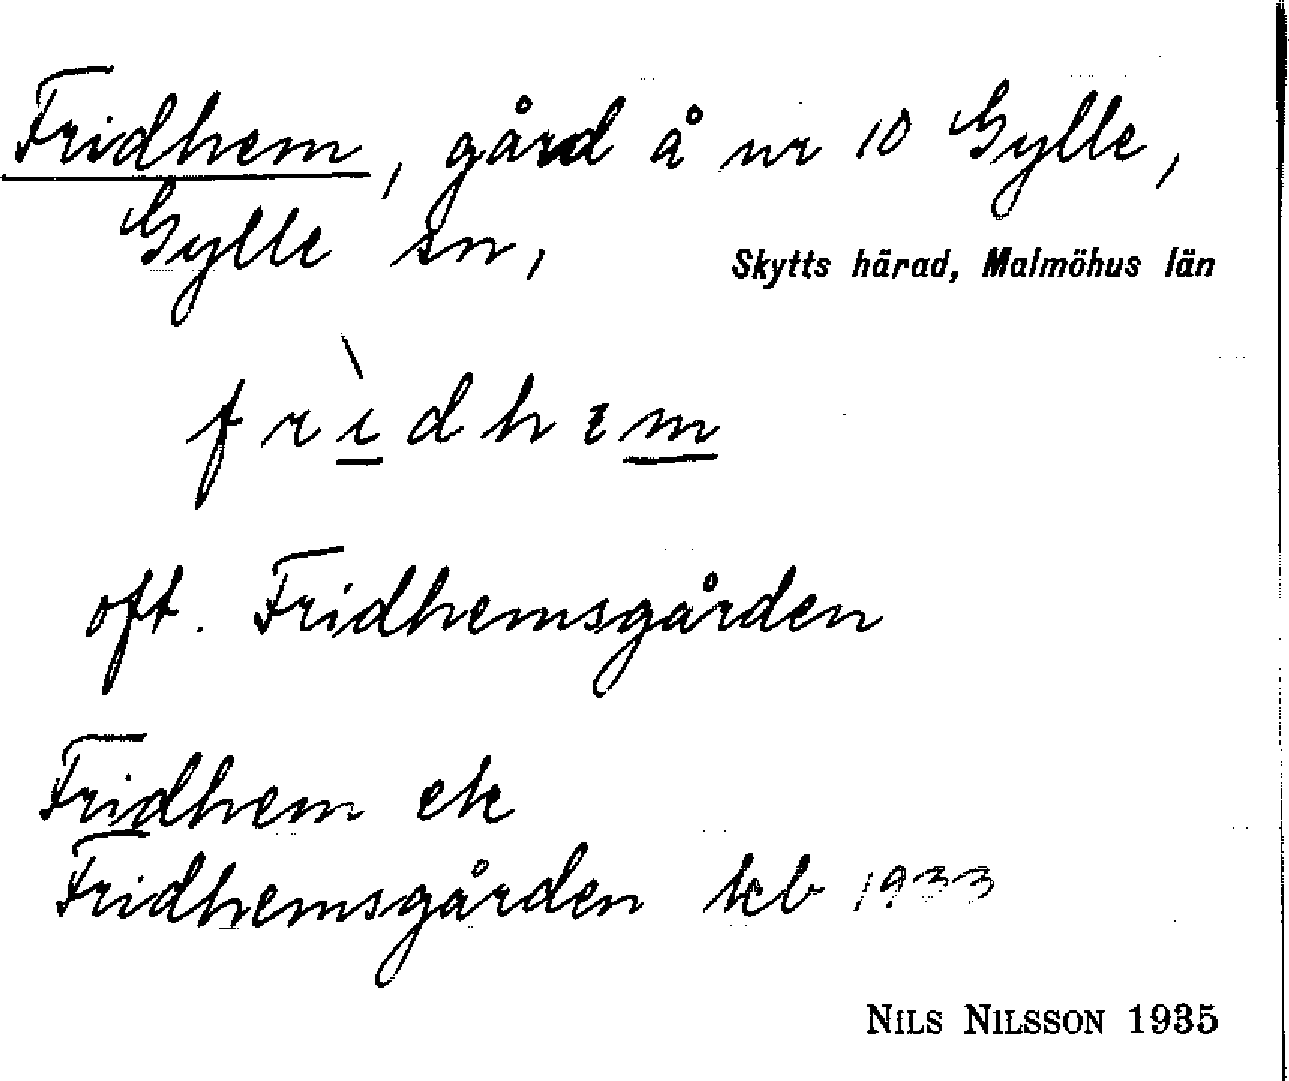 Fridhem, gård å nr 10 Gylle,
Gylle sn,
Skytts härad, Malmöhus län
frìdhɛm
oft. Fridhemsgården
Fridhem ek
Fridhemsgården kb 1933
NILS NILSSON 1935